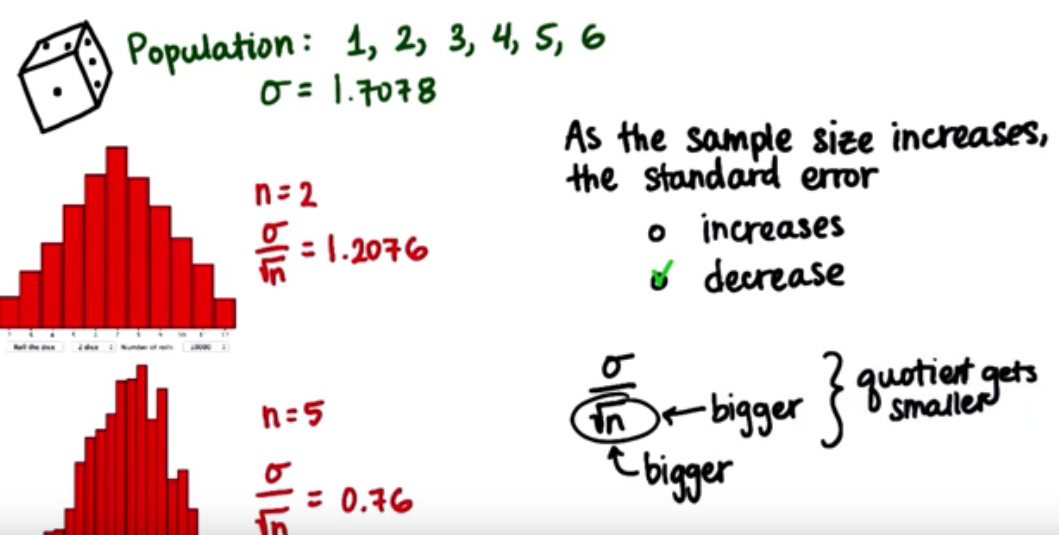 Population: 1, 2, 3, 4, 5, 6
σ = 1.7078
n = 2
σ/√n = 1.2076
Roll the dice 2 dice Number of rolls 10000
n = 5
σ/√n = 0.76
As the sample size increases,
the standard error
increases
decrease
σ/√n ← bigger } quotient gets
smaller
bigger